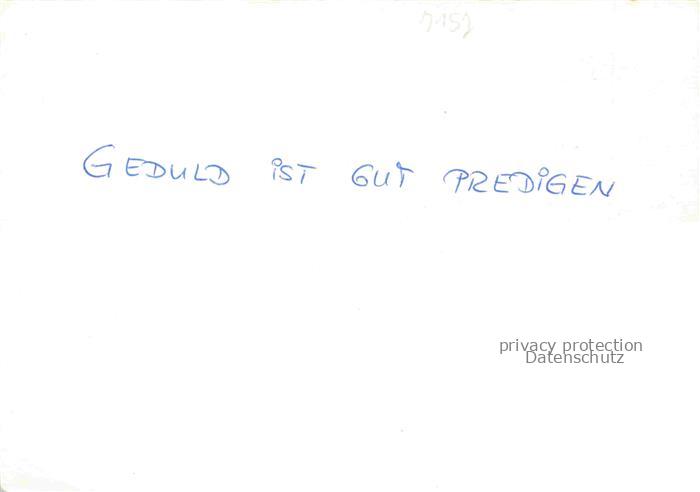 GEDULD iST GUT PREDiGEN
privacy protection
Datenschutz